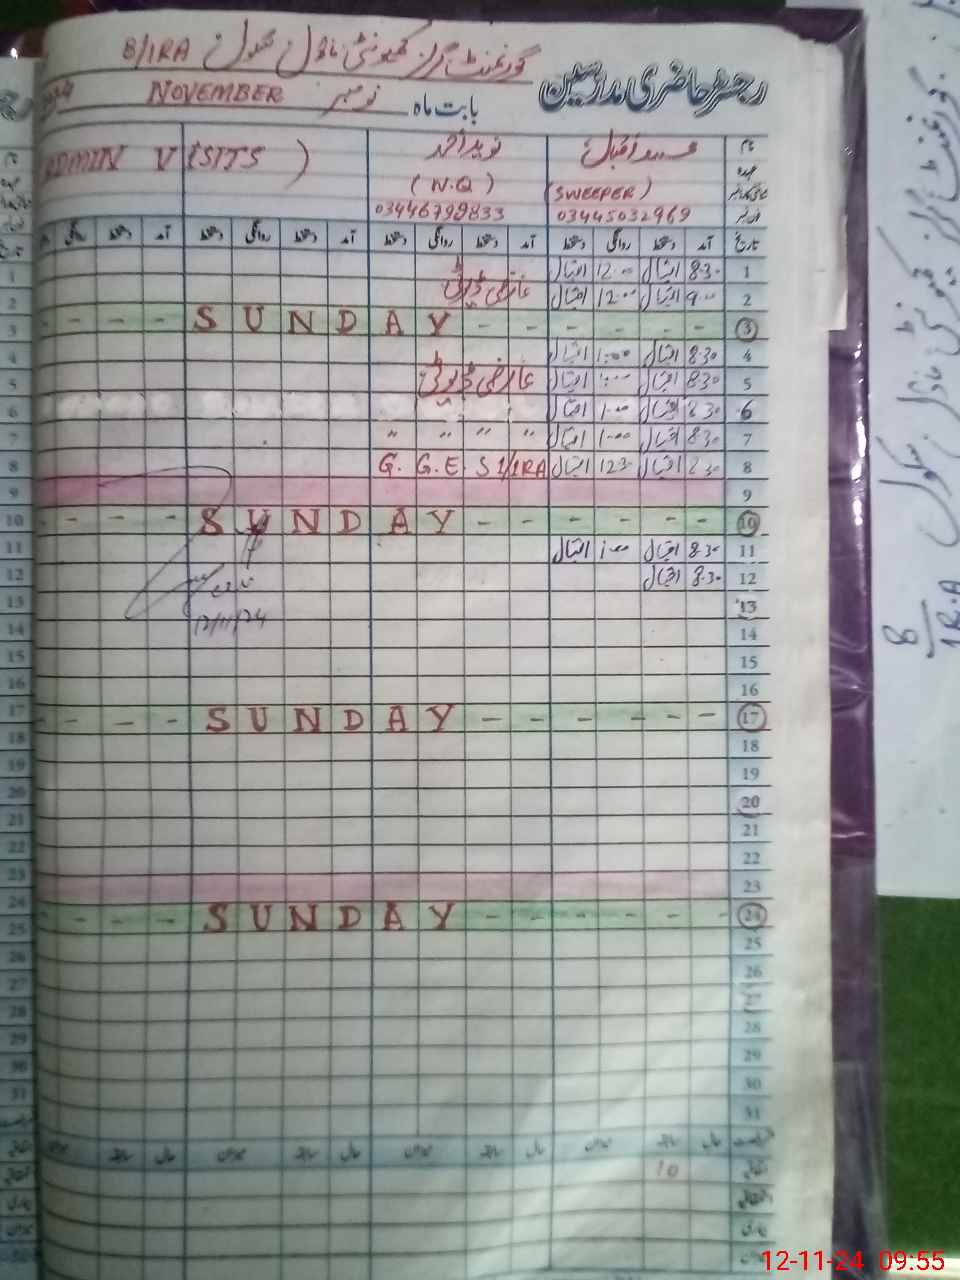 گورنمنٹ گرلز کمیونٹی ماڈل سکول 8/1RA
رجسٹر حاضری مدرسین
بابت ماہ نومبر NOVEMBER
نام نوید احمد ADMIN V(SITS)
عہدہ (SWEEPER) (N.Q)
03445032969 03446799833
تاریخ آمد دستخط روانگی دستخط آمد دستخط روانگی دستخط آمد دستخط روانگی دستخط آمد دستخط روانگی
1 8-30 اقبال 12-00 اقبال
عارضی ڈیوٹی
2 9-00 اقبال 12-00 اقبال
3 - - - - S U N D A Y - - - - - -
4 8-30 اقبال 1-00 اقبال
5 8-30 اقبال 1-00 اقبال عارضی ڈیوٹی
6 8-30 اقبال 1-00 اقبال
7 8-30 اقبال 1-00 اقبال " " " "
8 8-30 اقبال 12-30 اقبال G. G. E. S 1/1RA
9
10 - - - - S U N D A Y - - - - - -
11 8-30 اقبال 1-00 اقبال
12 8-30 اقبال
12/11/24
13
14
15
16
17 - - - - S U N D A Y - - - - - -
18
19
20
21
22
23
24 - - - - S U N D A Y - - - - - -
25
26
27
28
29
30
31
حال سابقہ میزان حال سابقہ میزان حال سابقہ میزان حال سابقہ میزان
اتفاقیہ 10
گورنمنٹ گرلز کمیونٹی ماڈل سکول
8/1R.A
12-11-24 09:55